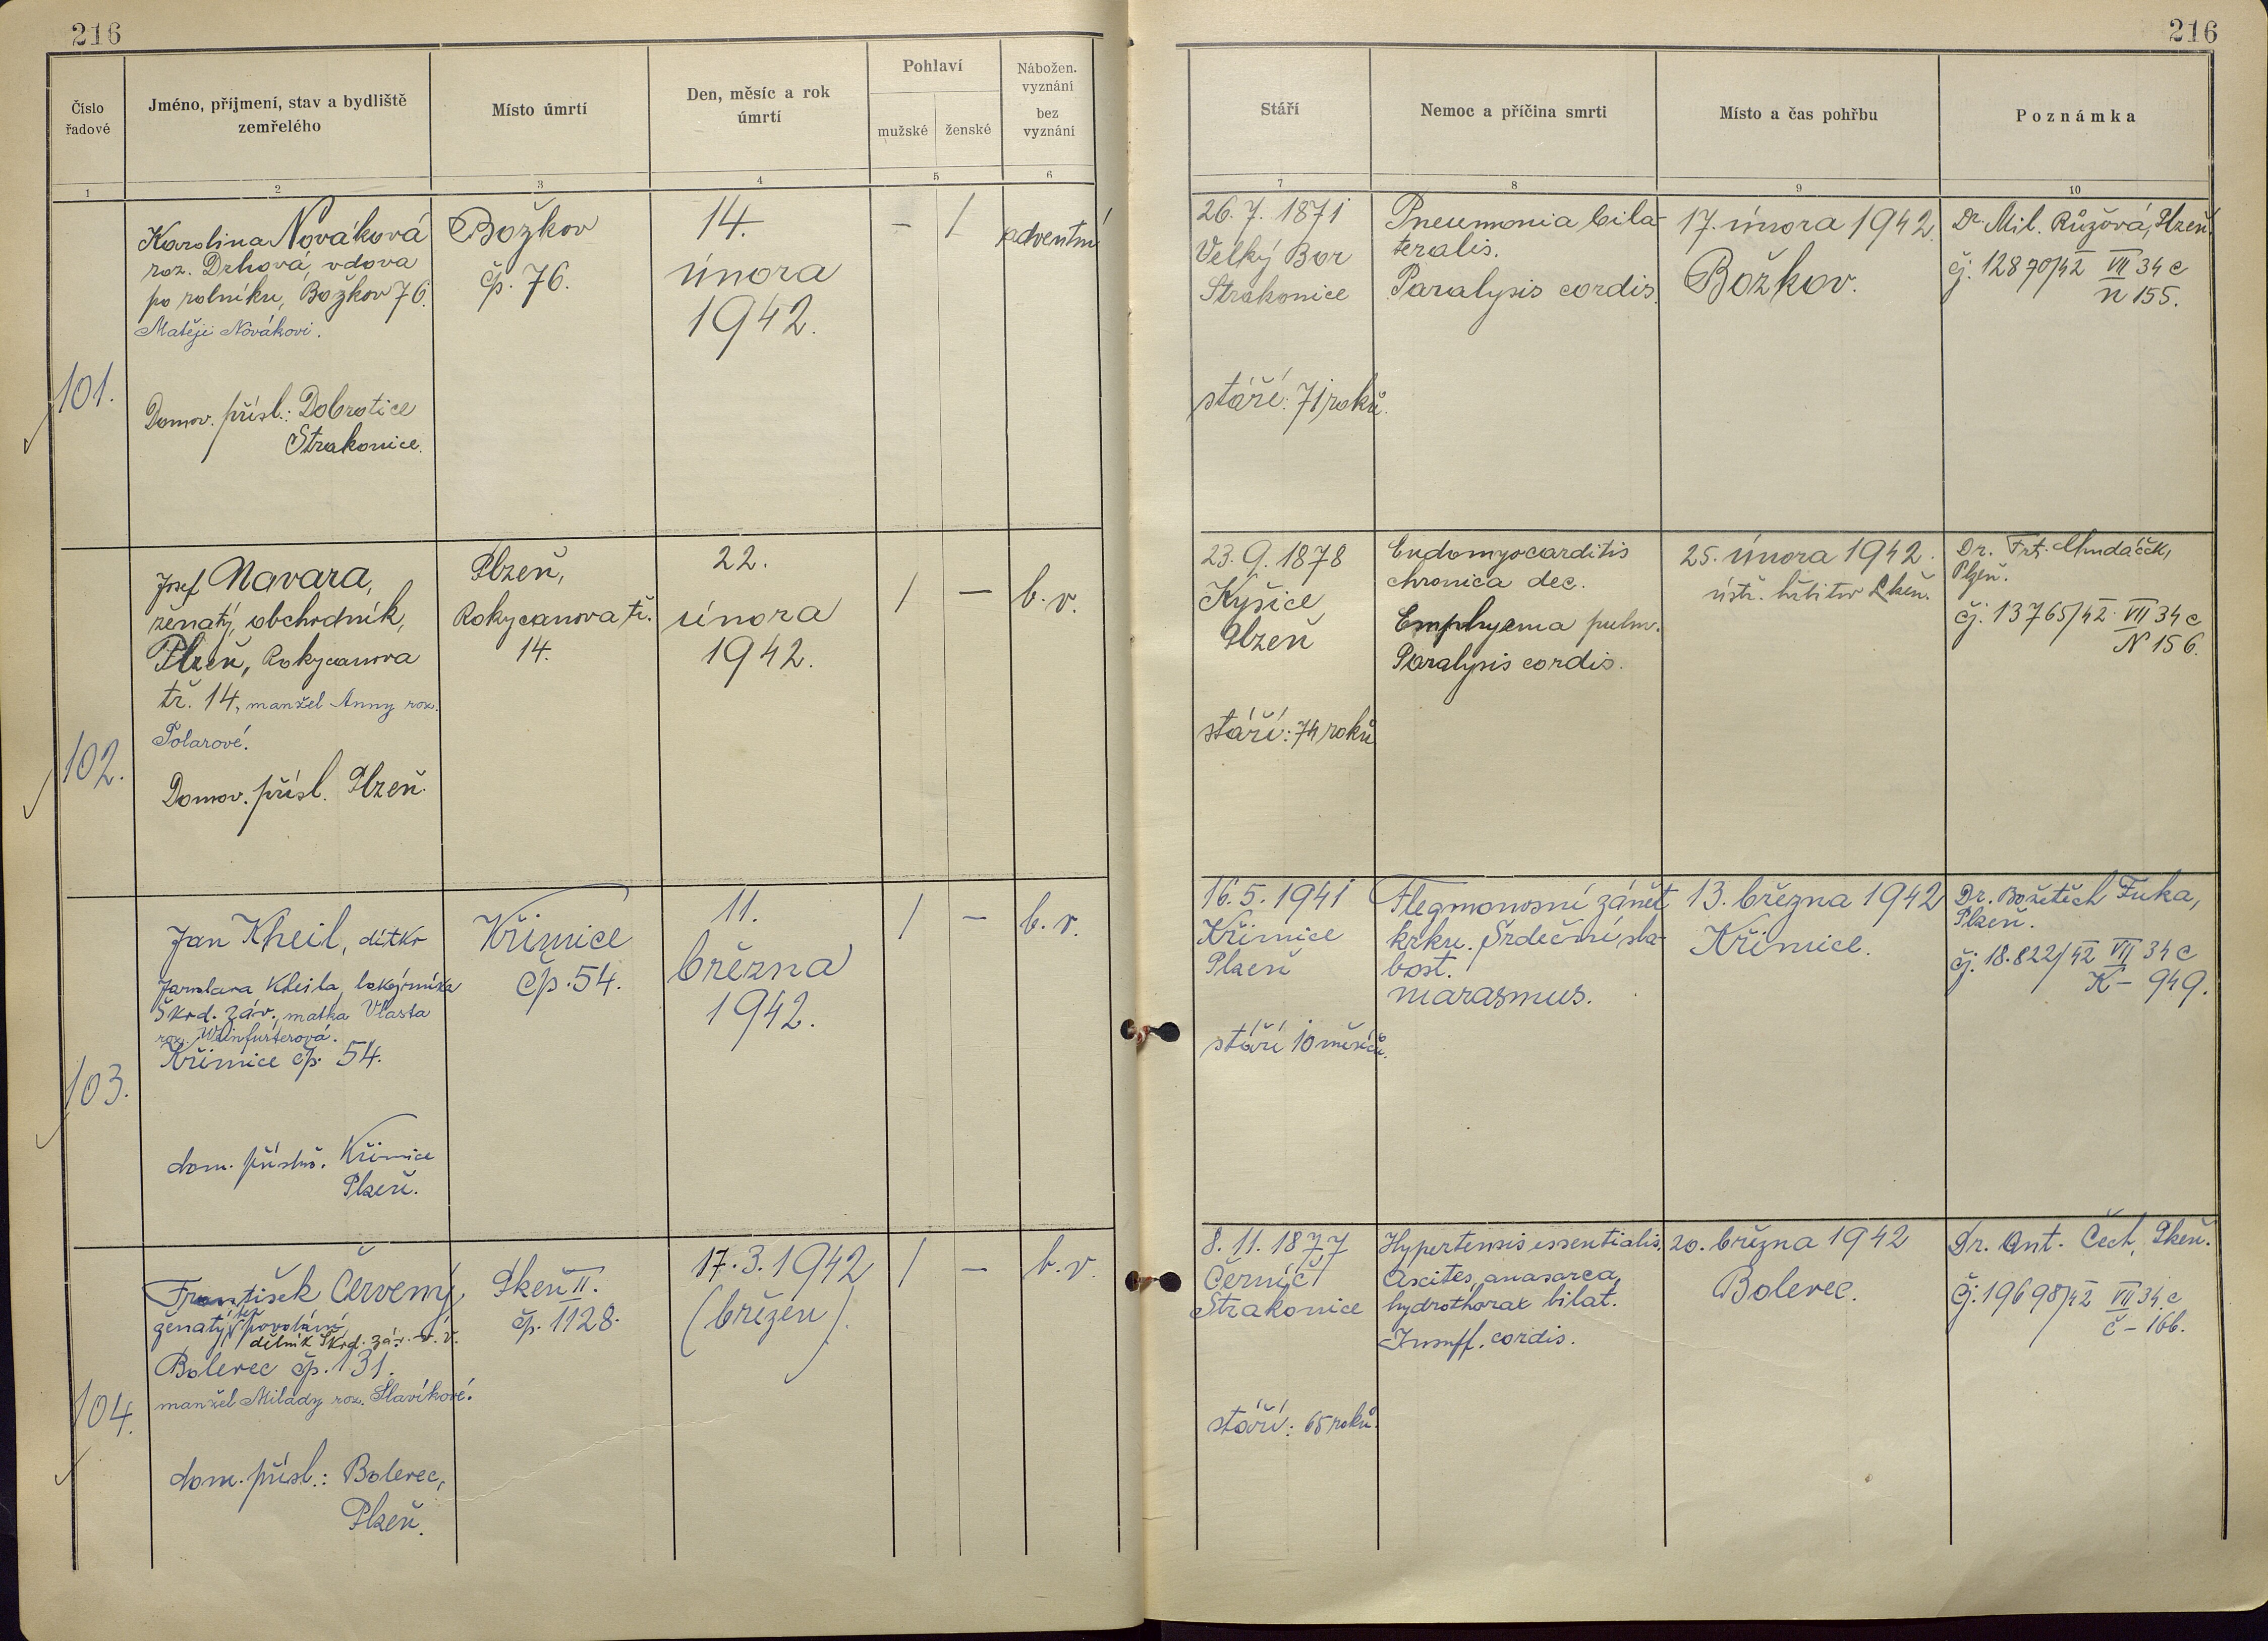 216
216
Číslo řadové
Jméno, příjmení, stav a bydliště
zemřelého
Místo úmrtí
Den, měsíc a rok
úmrtí
Pohlaví
mužské
ženské
Nábožen.
vyznání
bez
vyznání
Stáří
Nemoc a příčina smrti
Místo a čas pohřbu
Poznámka
1
2
3
4
5
6
7
8
9
10
101.
Karolina Nováková
roz. Drhová, vdova
po rolníku, Božkov 76.
Matěji Novákovi.
Domov. přísl.: Dobrotice
Strakonice.
Božkov
čp. 76.
14.
února
1942.
– /
adventní
26. 7. 1871
Velký Bor
Strakonice
stáří: 71 roků.
Pneumonia bila-
teralis.
Paralysis cordis.
17. února 1942.
Božkov.
Dr. Mil. Růžová, Plzeň.
čj. 12870/42 VII 34 c
n 155.
102.
Josef Navara,
ženatý, obchodník,
Plzeň, Rokycanova
tř. 14, manžel Anny roz.
Polarové.
Domov. přísl. Plzeň.
Plzeň,
Rokycanova tř.
14.
22.
února
1942.
/ –
b. v.
23. 9. 1878
Kyšice
Plzeň
stáří: 74 roků
Endomyocarditis
chronica dec.
Emphyema pulm.
Paralysis cordis.
25. února 1942.
ústř. hřbitov Plzeň.
Dr. Frt.
Plzeň.
čj. 13765/42 VII 34 c
N 156.
103.
Jan Kheil, dítko
Jaroslava Kheila,
Škod. záv., matka Vlasta
roz. Weinfurterová.
Křimice čp. 54.
dom. přísluš. Křimice
Plzeň.
Křimice
čp. 54.
11.
března
1942.
/ –
b. v.
16. 5. 1941
Křimice
Plzeň
stáří 10 měsíců.
Flegmonosní zánět
krku. Srdeční sla-
bost.
marasmus.
13. března 1942
Křimice.
Dr. Božetěch Fuka,
Plzeň.
čj. 18.822/42 VII 34 c
K – 949.
104.
František Červený,
ženatý, bez povolání
dělník Škod. záv. v. v.
Bolevec čp. 131.
manžel Milady roz. Slavíkové.
dom. přísl.: Bolevec,
Plzeň.
Plzeň II.
čp. 1128.
17. 3. 1942
(březen).
/ –
b. v.
8. 11. 1877
Černíč
Strakonice
stáří: 65 roků.
Hypertensis essentialis,
Ascites, anasarca,
hydrothorax bilat.
Insuff. cordis.
20. března 1942
Bolevec.
Dr. Ant. Čech, Plzeň.
Čj. 19698/42 VII 34 c
č – 166.